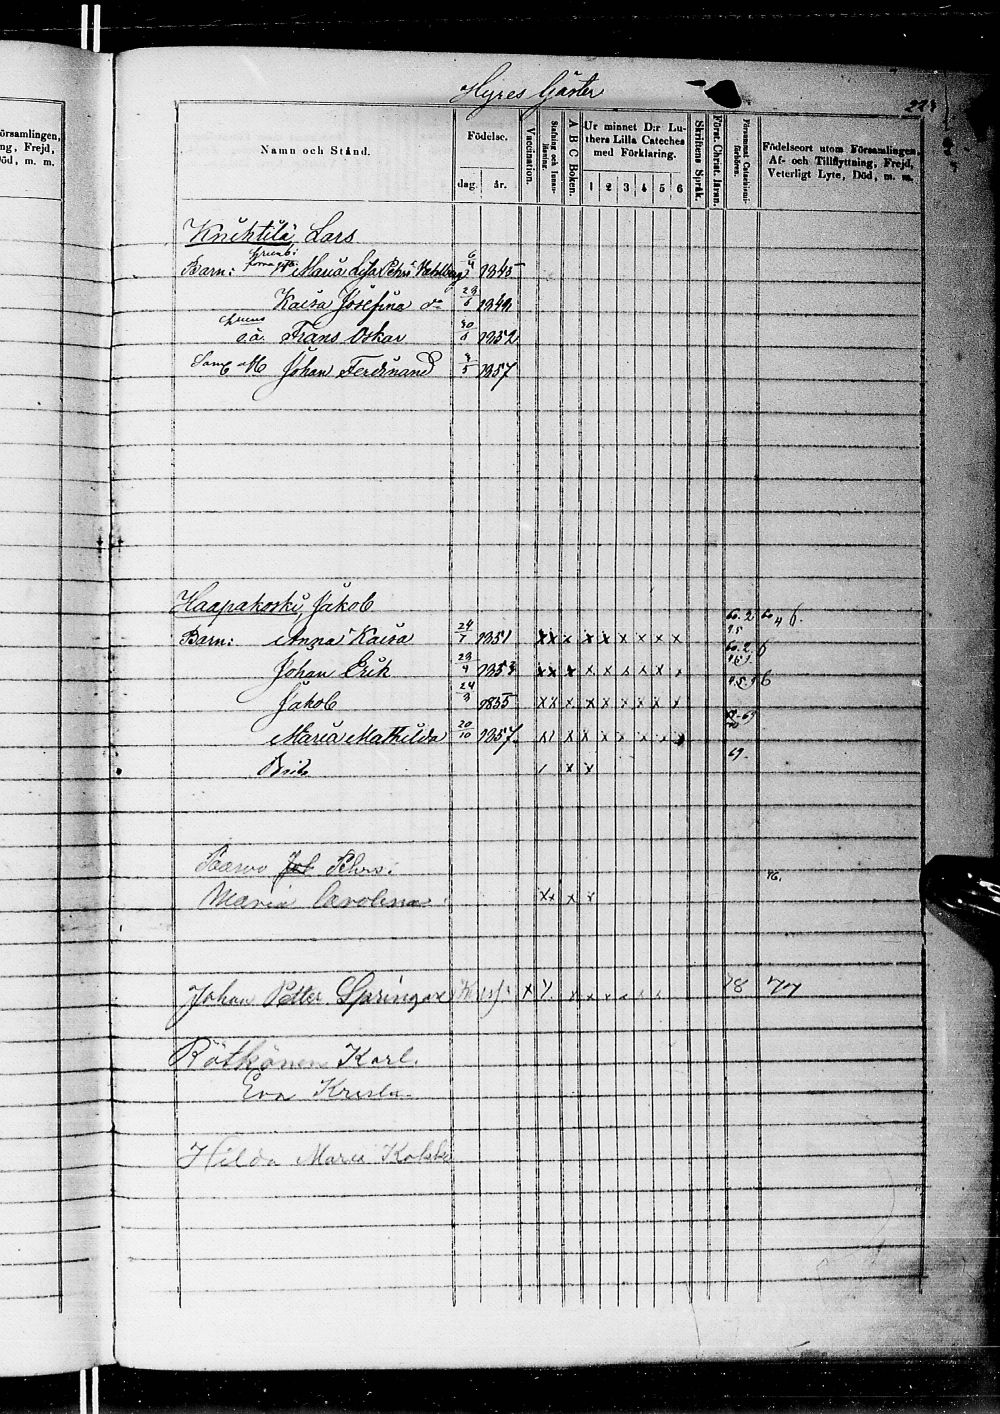 örsamlingen,
ng, Frejd,
Död, m. m.
Hyres Gäster
223
Namn och Stånd.
Födelse.
dag.
år.
Vaccination.
Stafning och Innanläsning.
A B C Boken.
Ur minnet D:r Luthers Lilla Cateches med Förklaring.
1 2 3 4 5 6
Skriftens Språk.
Först. Christ. läran.
Födelseort utom Församlingen,
Af- och Tillflyttning, Frejd,
Veterligt Lyte, Död, m. m.
Knihtilä Lars
Barn: Maria Lisa 6/4 1845
Kaisa Josefina 1849
Frans Oskar 1852
Johan Ferdinand 4/5 1857
Haapakoski Jakob
Barn: Anna Kaisa 24/7 1851 x x x x x x x x x
Johan Erik 23/4 1853 x x x x x x x x
Jakob 24/3 1855 x x x x x x x x x
Maria Mathilda 20/10 1857 x x x x x
69.
Brit x x
Maria Carolina x x x x
Johan Petter Springar x 78 77
Rötkönen Karl.
Eva Krista
Hilda Maria